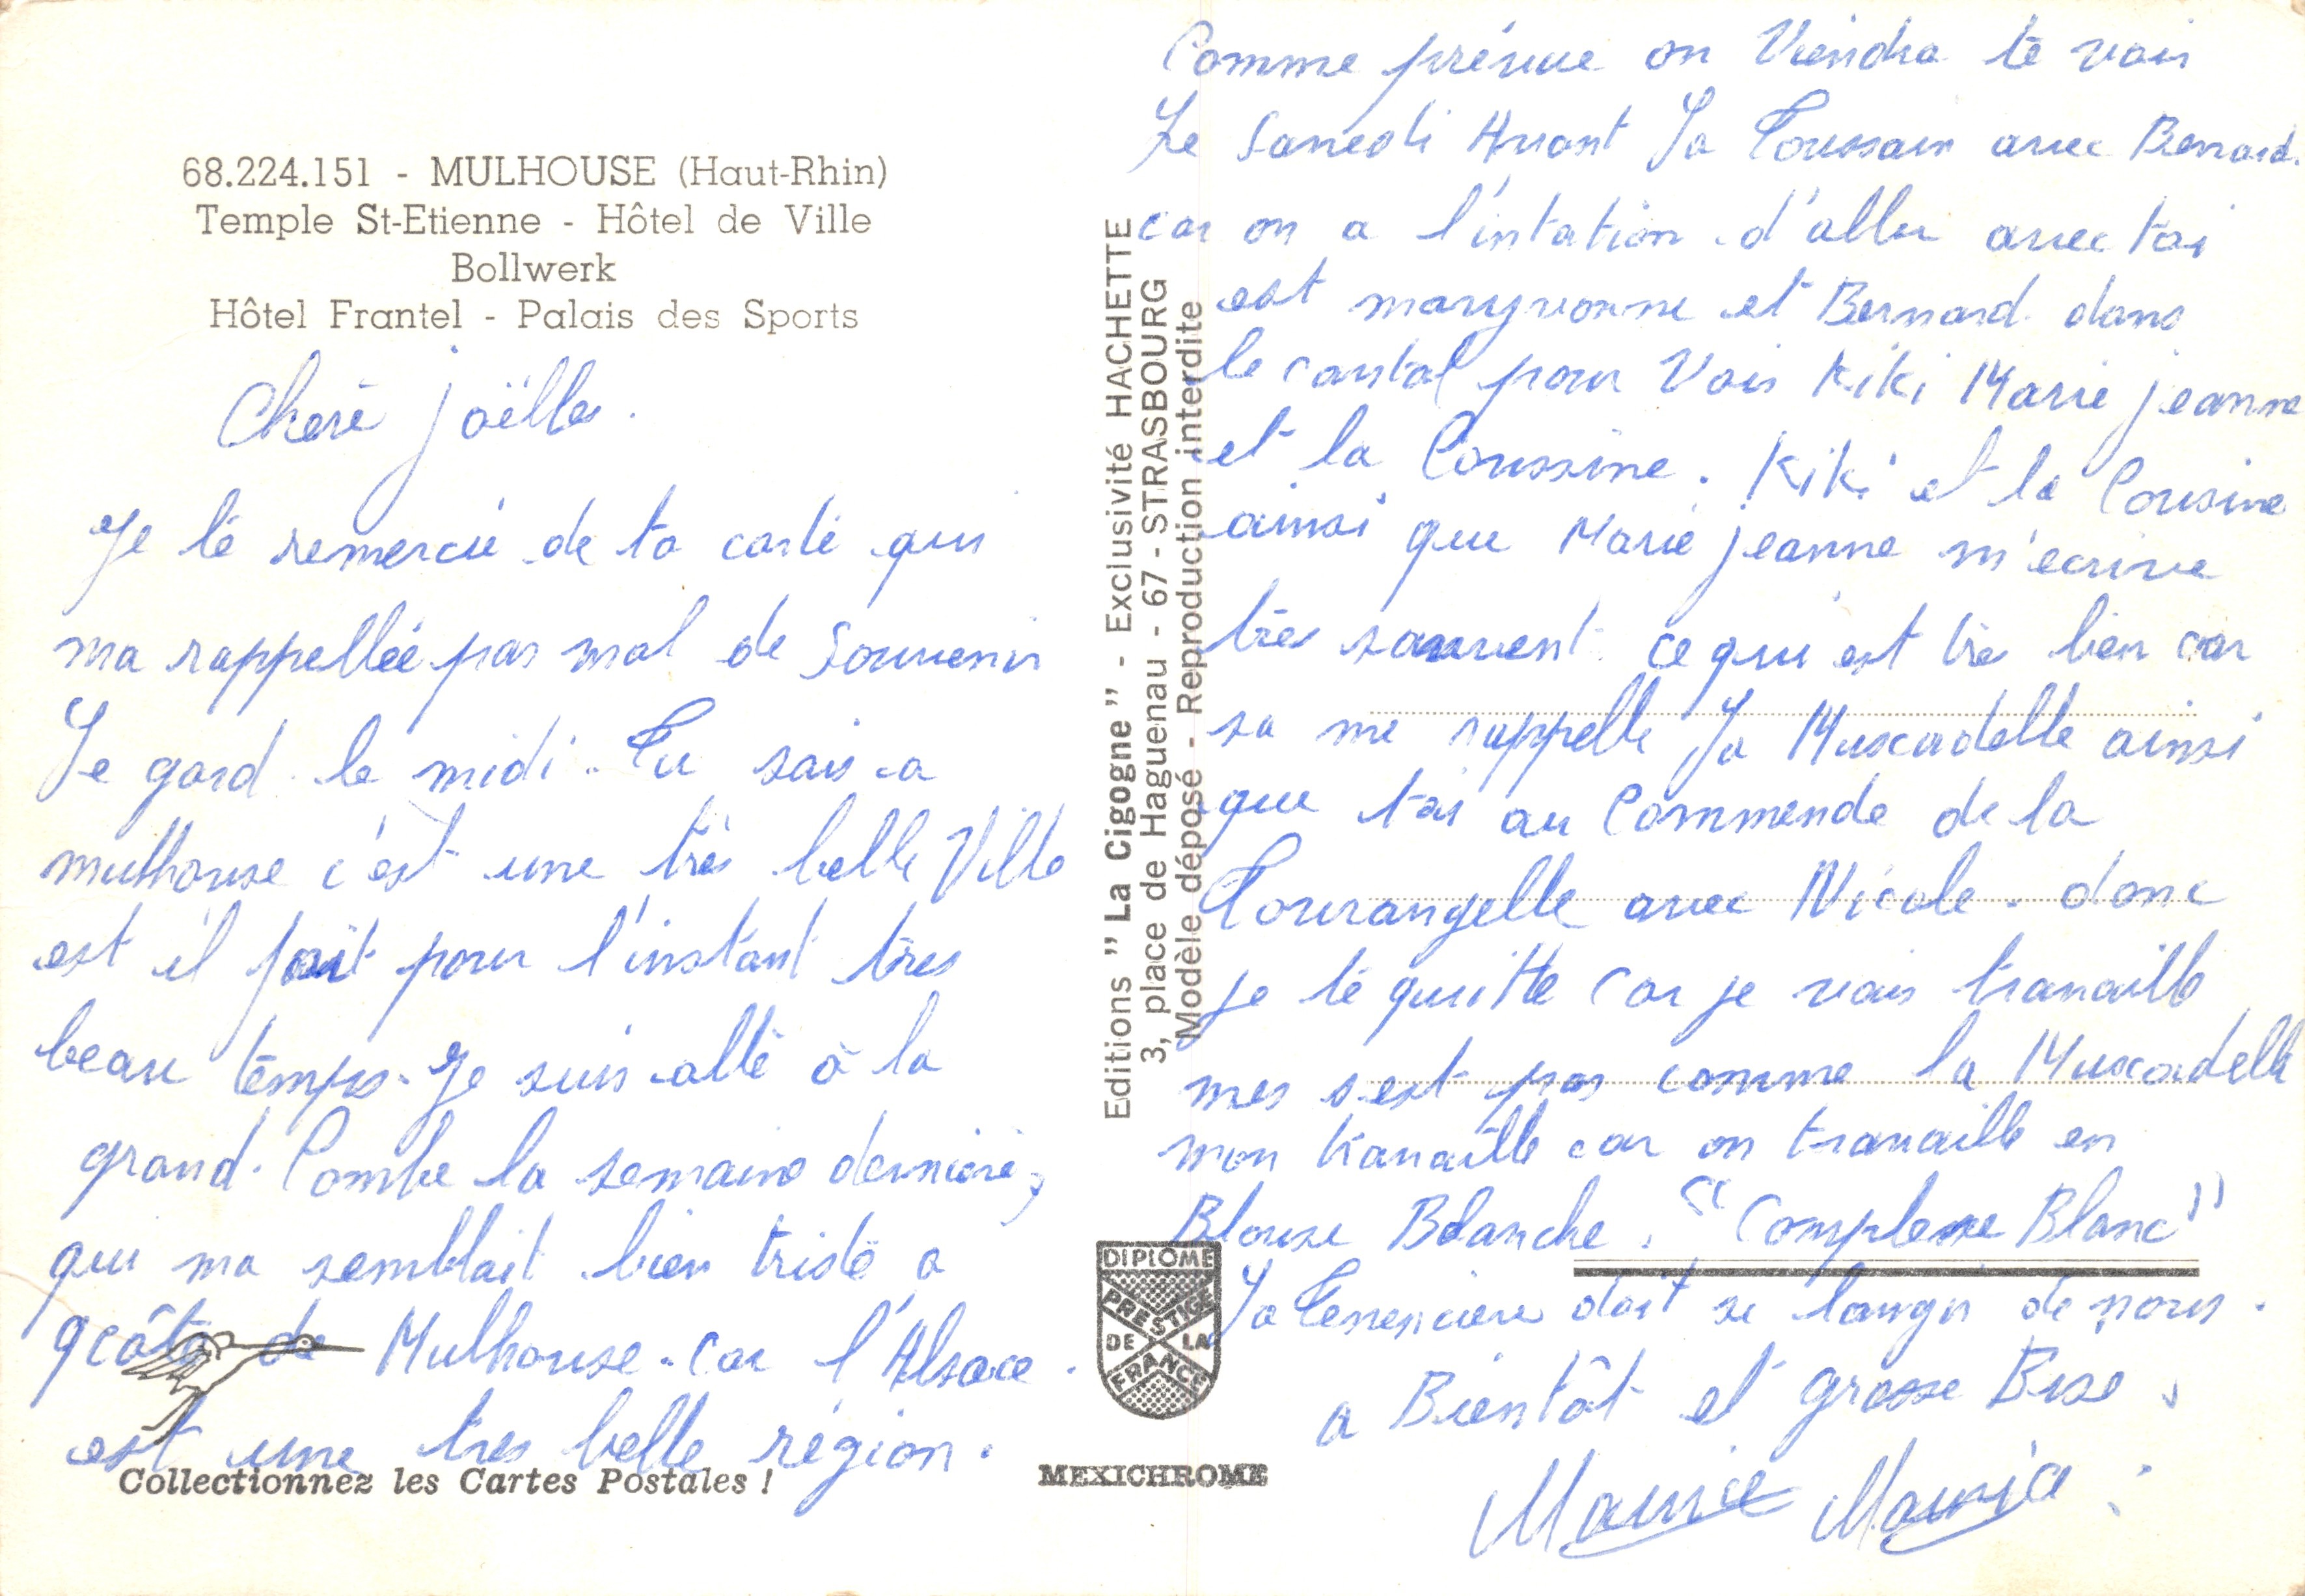 68.224.151 - MULHOUSE (Haut-Rhin)
Temple St-Etienne - Hôtel de Ville
Bollwerk
Hôtel Frantel - Palais des Sports
Cherè joëlle.
Je tè remercie de ta carte qui
ma rappellée pas mal de Souvenir
Le gard le midi. Tu sais a
mulhouse c'est une très belle Ville
est il fait pour l'instant très
beau temps. Je suis allé à la
grand. Combe la semaine dernière,
qui ma semblait bien triste a
côte de Mulhouse. Car l'Alsace.
est une tres belle région.
Collectionnez les Cartes Postales !
Editions "La Cigogne" - Exclusivité HACHETTE
3, place de Haguenau - 67 - STRASBOURG
Modèle déposé - Reproduction interdite
DIPLOME
PRESTIGE
DE LA
FRANCE
MEXICHROME
Comme prévue on Viendra te voir
Le Samedi Avant La Toussain avec Bernard.
car on a l'intation d'aller avec toi
est maryvonne et Bernard dans
le cantal pour Voir Kiki Marie jeanne
et la Coussine. Kiki et la Cousine
ainsi que Marie jeanne m'ecrive
très souvent ce qui est très bien car
sa me rappelle La Muscadelle ainsi
que toi au Commende de la
Tourangelle avec Nicole. donc
je te quitte Car je vais travaille
mes s'est pas comme la Muscadelle
mon travaille car on travaille en
Blouse Blanche. "Complexe Blanc"
La Tenencière doit se langir de nous.
a Bientôt et grosse Bise.
Maurice Maurice.